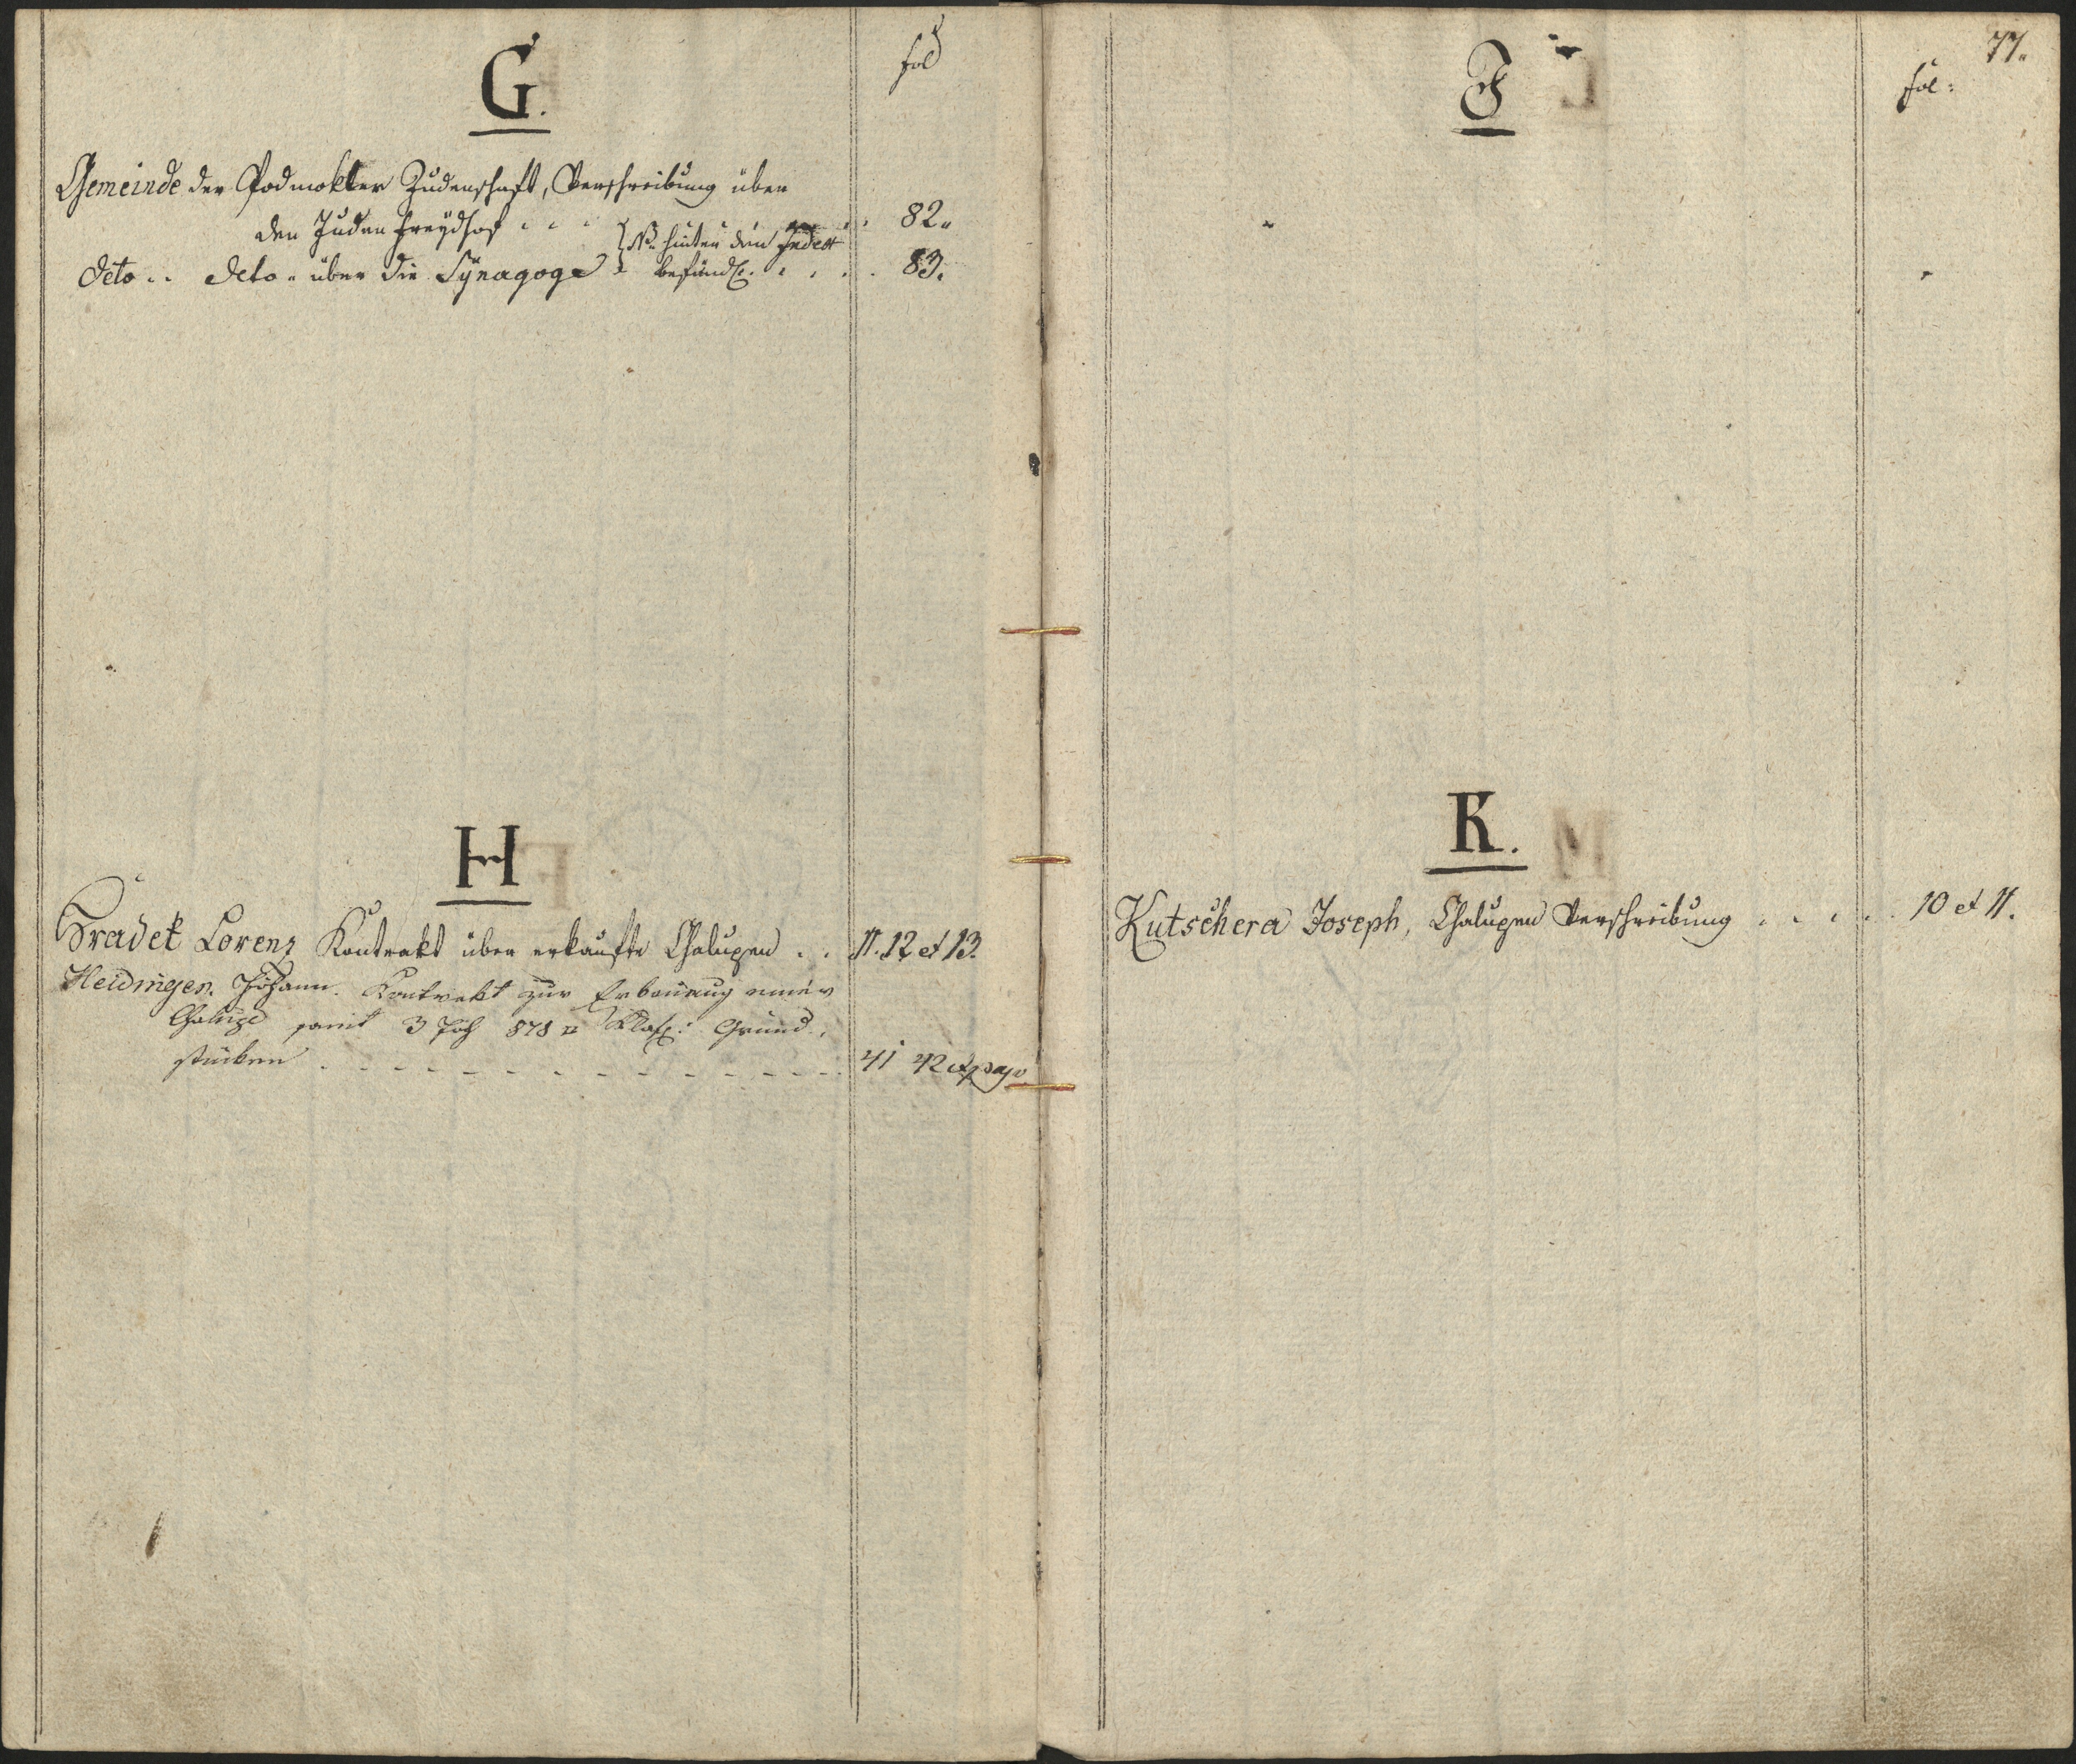 G.
fol
Gemeinde der Podmokler Judenschaft, Verschreibung über
den Juden Freydhof . . . . . 82.
{ NB. hinter den Index
Deto . . Deto . über die Sÿnagoge befindl. . . . . 83.
H
Hradek Lorenz Kontrakt über erkaufte Chalupen . . 11. 12 et 13.
Heidinger Johann. Kontrakt zur Erbauung einer
Chalupe samt 3 Joch 878 □ Klaft: Grund-
stücken - - - - - - - - - - 41 42 et
77.
J
fol:
K.
Kutschera Joseph, Chalupen Verschreibung . . . . . 10 et 11.